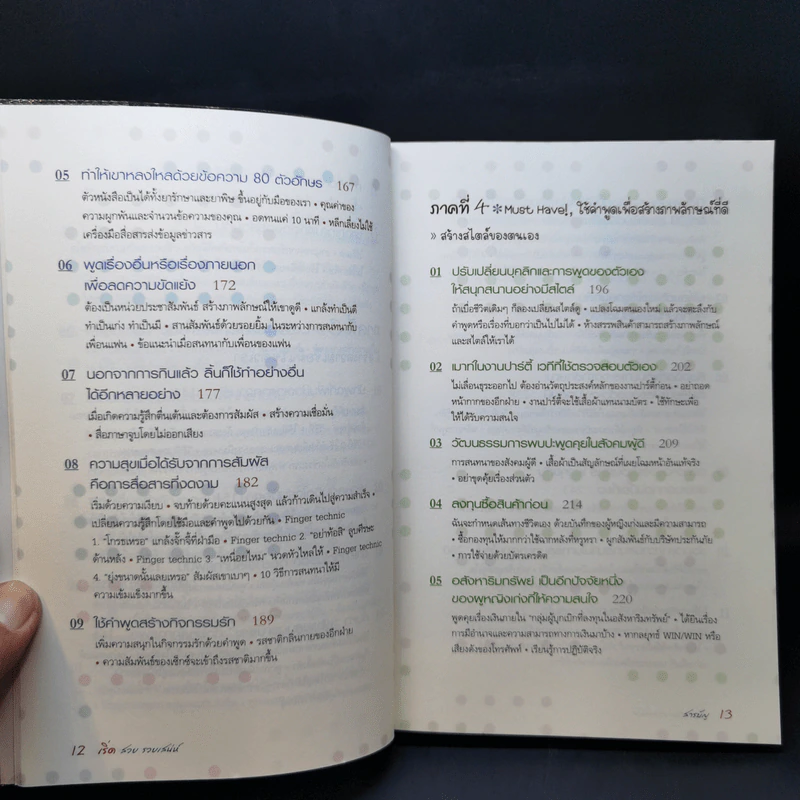 05 ทำให้เขาหลงใหลด้วยข้อความ 80 ตัวอักษร 167
ตัวหนังสือเป็นได้ทั้งยารักษาและยาพิษ ขึ้นอยู่กับมือของเรา • คุณค่าของ
ความผูกพันและจำนวนข้อความของคุณ • อดทนแค่ 10 นาที • หลีกเลี่ยงไม่ใช้
เครื่องมือสื่อสารส่งข้อมูลข่าวสาร
06 พูดเรื่องอื่นหรือเรื่องภายนอก
เพื่อลดความขัดแย้ง 172
ต้องเป็นหน่วยประชาสัมพันธ์ สร้างภาพลักษณ์ให้เขาดูดี • แกล้งทำเป็นดี
ทำเป็นเก่ง ทำเป็นมี • สานสัมพันธ์ด้วยรอยยิ้ม ในระหว่างการสนทนากับ
เพื่อนแฟน • ข้อแนะนำเมื่อสนทนากับเพื่อนของแฟน
07 นอกจากการกินแล้ว ลิ้นก็ใช้ทำอย่างอื่น
ได้อีกหลายอย่าง 177
เมื่อเกิดความรู้สึกตื่นเต้นและต้องการสัมผัส • สร้างความเชื่อมั่น
• สื่อภาษาจูบโดยไม่ออกเสียง
08 ความสุขเมื่อได้รับจากการสัมผัส
คือการสื่อสารที่งดงาม 182
เริ่มด้วยความเงียบ • จบท้ายด้วยคะแนนสูงสุด แล้วก้าวเดินไปสู่ความสำเร็จ •
เปลี่ยนความรู้สึกโดยใช้มือและคำพูดไปด้วยกัน • Finger technic
1. "โกรธเหรอ" แกล้งจั๊กจี้ที่ฝ่ามือ • Finger technic 2. "อย่าท้อสิ" ลูบศีรษะ
ด้านหลัง • Finger technic 3. "เหนื่อยไหม" นวดหัวไหล่ให้ • Finger technic
4. "ยุ่งขนาดนั้นเลยเหรอ" สัมผัสเขาเบาๆ • 10 วิธีการสนทนาให้มี
ความเข้มแข็งมากขึ้น
09 ใช้คำพูดสร้างกิจกรรมรัก 189
เพิ่มความสนุกในกิจกรรมรักด้วยคำพูด • รสชาติกลิ่นกายของอีกฝ่าย
• ความสัมพันธ์ของเซ็กซ์จะเข้าถึงรสชาติมากขึ้น
12 เริ่ด สวย รวยเสน่ห์
ภาคที่ 4 * Must Have!, ใช้คำพูดเพื่อสร้างภาพลักษณ์ที่ดี
» สร้างสไตล์ของตนเอง
01 ปรับเปลี่ยนบุคลิกและการพูดของตัวเอง
ให้สนุกสนานอย่างมีสไตล์ 196
ถ้าเบื่อชีวิตเดิมๆ ก็ลองเปลี่ยนสไตล์ดู • แปลงโฉมตนเองใหม่ แล้วจะตะลึงกับ
คำพูดหรือเรื่องที่บอกว่าเป็นไปไม่ได้ • ห้างสรรพสินค้าสามารถสร้างภาพลักษณ์
และสไตล์ให้เราได้
02 เมาท์ในงานปาร์ตี้ เวทีที่ใช้ตรวจสอบตัวเอง 202
ไม่เลื่อนธุระออกไป ต้องอ่านวัตถุประสงค์หลักของงานปาร์ตี้ก่อน • อย่าถอด
หน้ากากของอีกฝ่าย • งานปาร์ตี้จะใช้เสื้อผ้าแทนนามบัตร • ใช้ทักษะเพื่อ
ให้ได้รับความสนใจ
03 วัฒนธรรมการพบปะพูดคุยในสังคมผู้ดี 209
การสนทนาของสังคมผู้ดี • เสื้อผ้าเป็นสัญลักษณ์ที่เผยโฉมหน้าอันแท้จริง
• อย่าขุดคุ้ยเรื่องส่วนตัว
04 ลงทุนซื้อสินค้าก่อน 214
ฉันจะกำหนดเส้นทางชีวิตเอง ด้วยบันทึกของผู้หญิงเก่งและมีความสามารถ
• ซื้อกองทุนให้มากกว่าใช้ฉากหลังที่หรูหรา • ผูกสัมพันธ์กับบริษัทประกันภัย
• การใช้จ่ายด้วยบัตรเครดิต
05 อสังหาริมทรัพย์ เป็นอีกปัจจัยหนึ่ง
ของผู้หญิงเก่งที่ให้ความสนใจ 220
พูดคุยเรื่องเงินภายใน "กลุ่มผู้บุกเบิกที่ลงทุนในอสังหาริมทรัพย์" • ได้ยินเรื่อง
การมีอำนาจและความสามารถทางการเงินมาบ้าง • หากลยุทธ์ WIN/WIN หรือ
เสียงดังของโทรศัพท์ • เรียนรู้การปฏิบัติจริง
สารบัญ 13